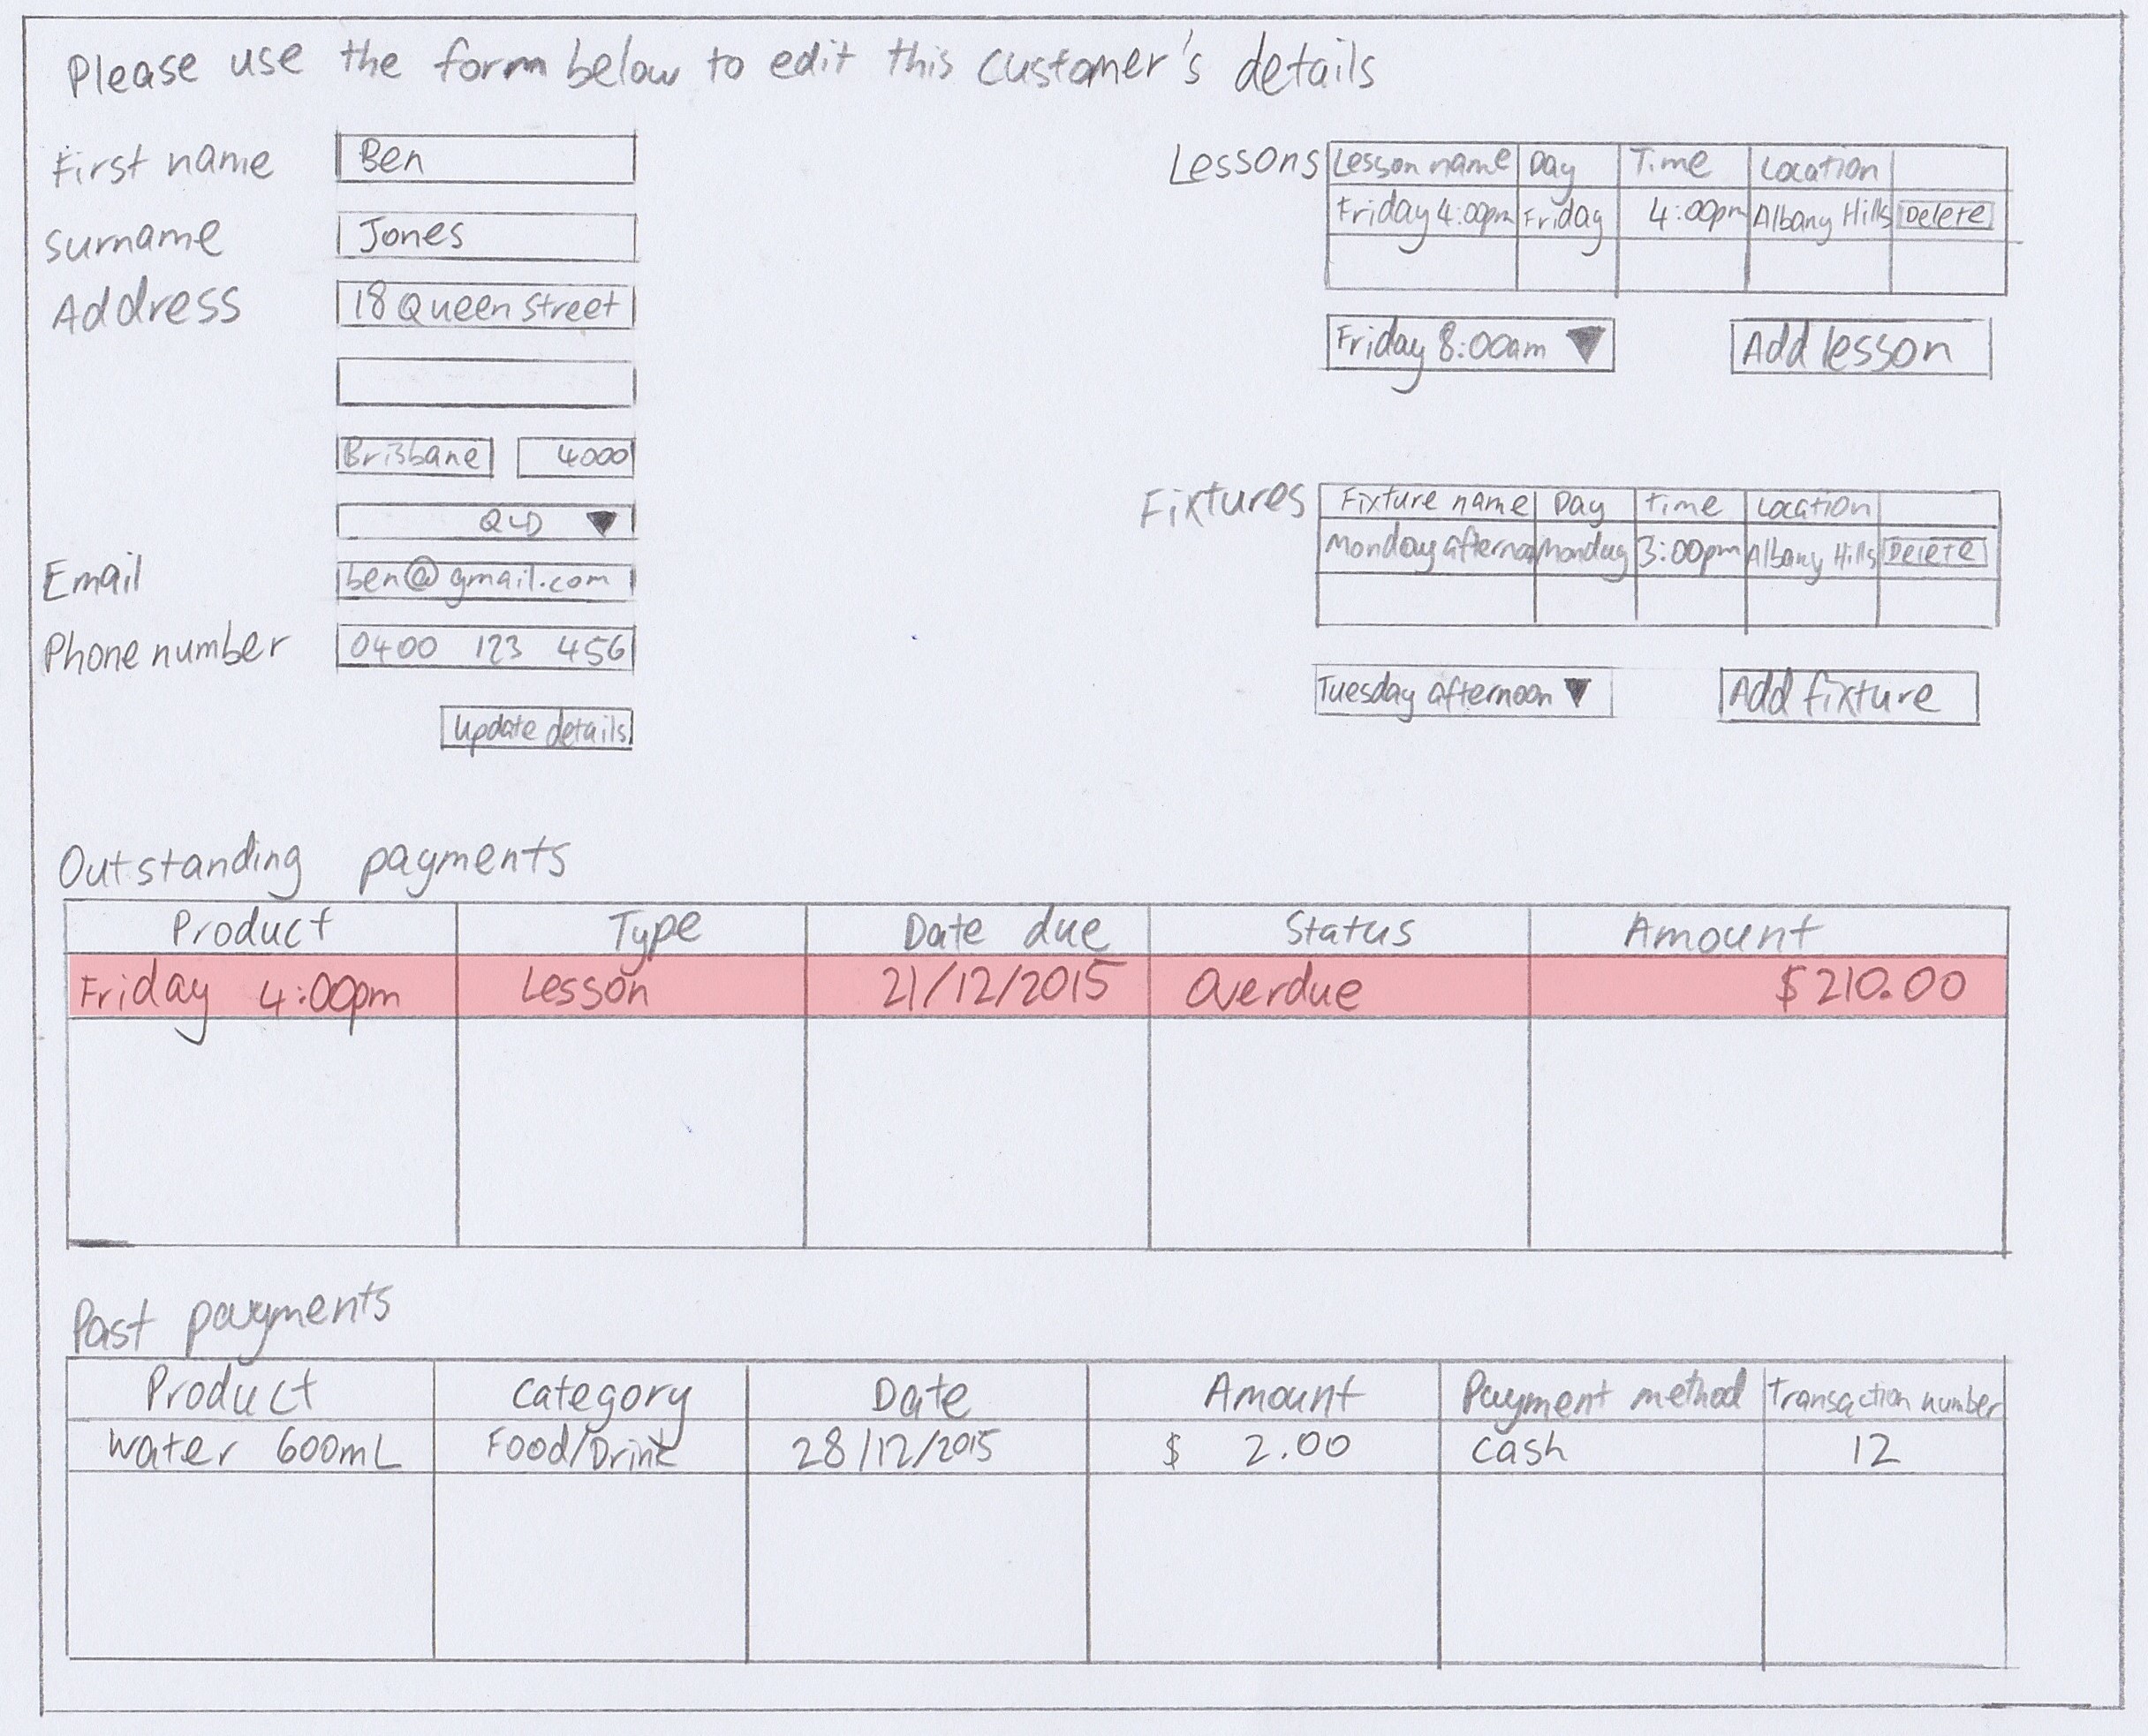 Please use the form below to edit this customer's details
First name
Ben
Surname
Jones
Address
18 Queen Street
Brisbane 4000
QLD
Email
ben@gmail.com
Phone number
0400 123 456
Update details
Lessons
Lesson name Day Time Location
Friday 4:00pm Friday 4:00pm Albany Hills Delete
Friday 8:00am Add lesson
Fixtures
Fixture name Day Time Location
Monday afternoo Monday 3:00pm Albany Hills Delete
Tuesday afternoon Add fixture
Outstanding payments
Product Type Date due Status Amount
Friday 4:00pm Lesson 21/12/2015 Overdue $210.00
Past payments
Product Category Date Amount Payment method Transaction number
Water 600mL Food/Drink 28/12/2015 $ 2.00 Cash 12